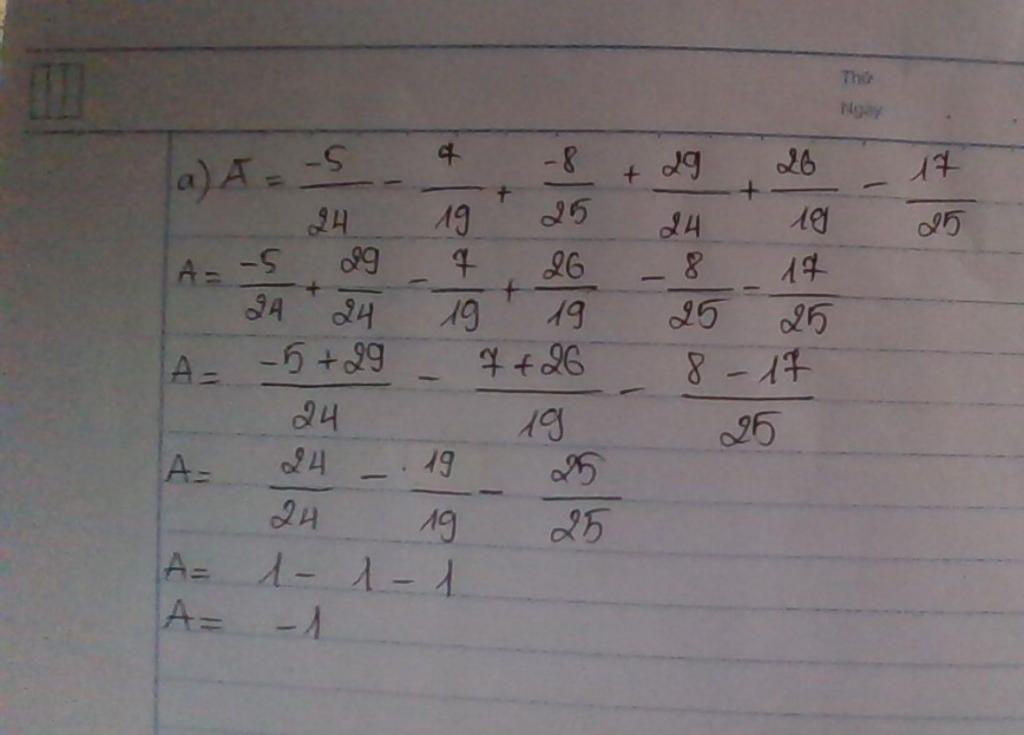 Thứ
Ngày
a) A = -5/24 - 7/19 + -8/25 + 29/24 + 26/19 - 17/25
A = -5/24 + 29/24 - 7/19 + 26/19 - 8/25 - 17/25
A = -5+29/24 - 7+26/19 - 8-17/25
A = 24/24 - 19/19 - 25/25
A = 1 - 1 - 1
A = -1